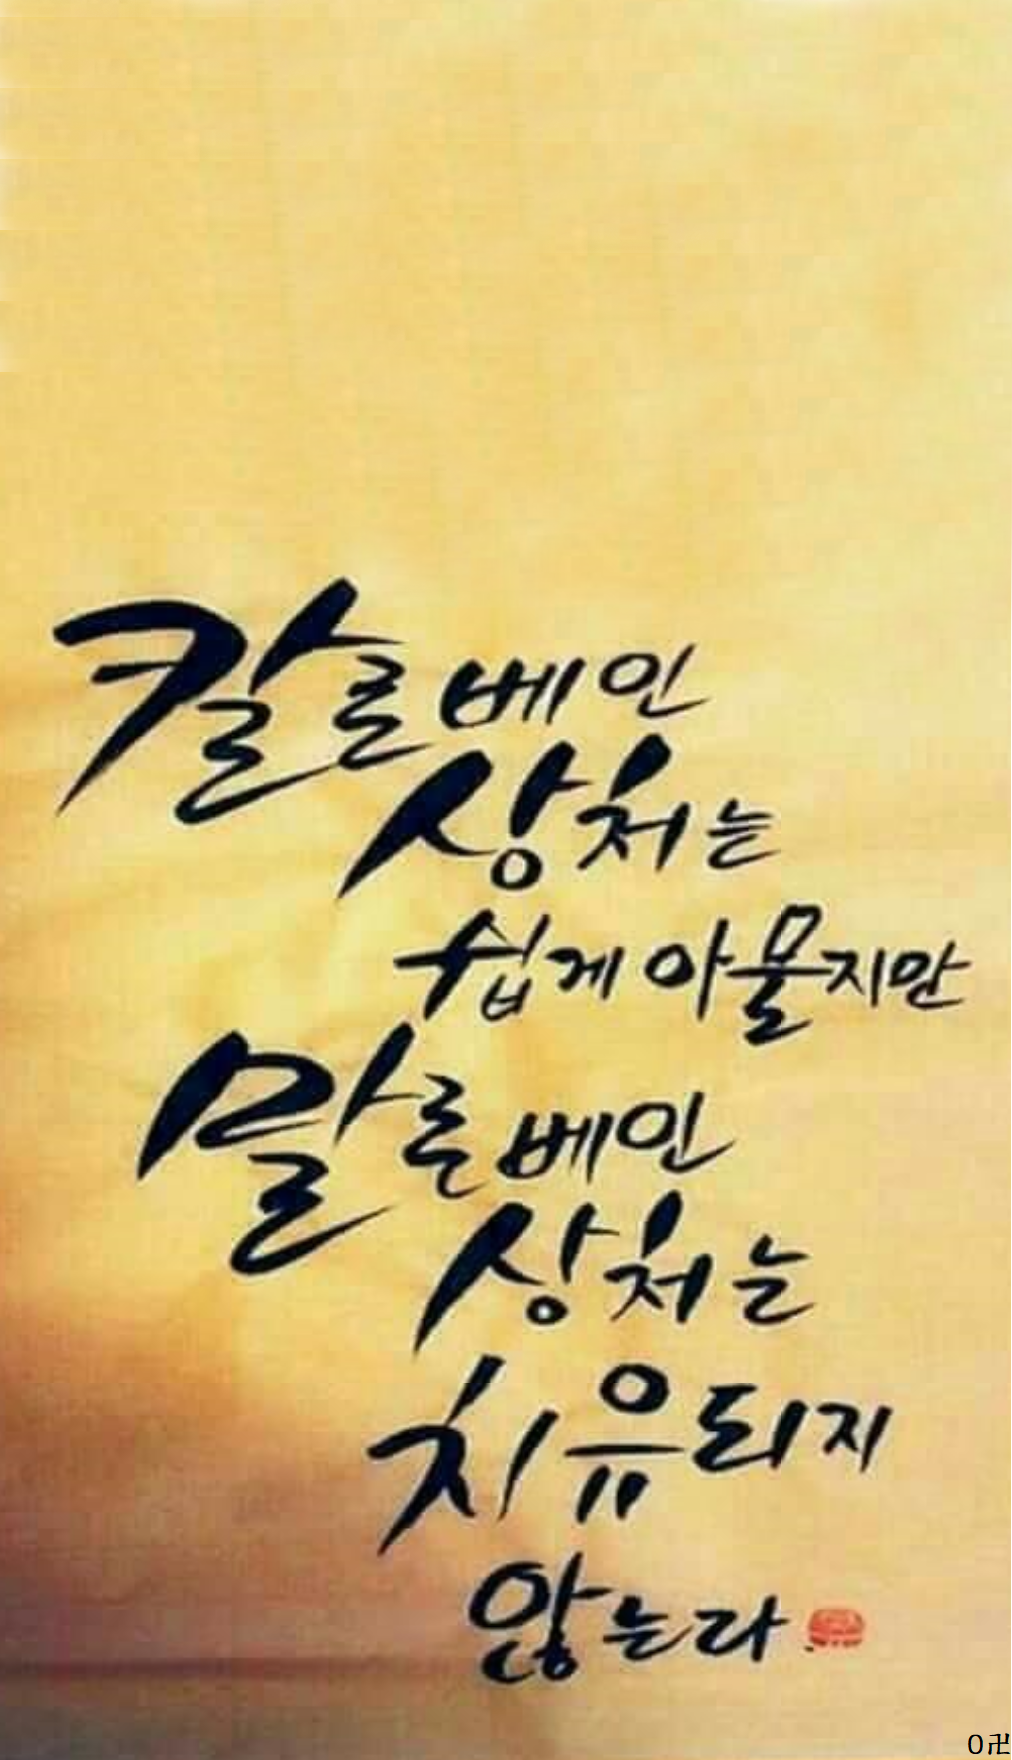 칼로 베인
상처는
쉽게 아물지만
말로 베인
상처는
치유되지
않는라
0卍